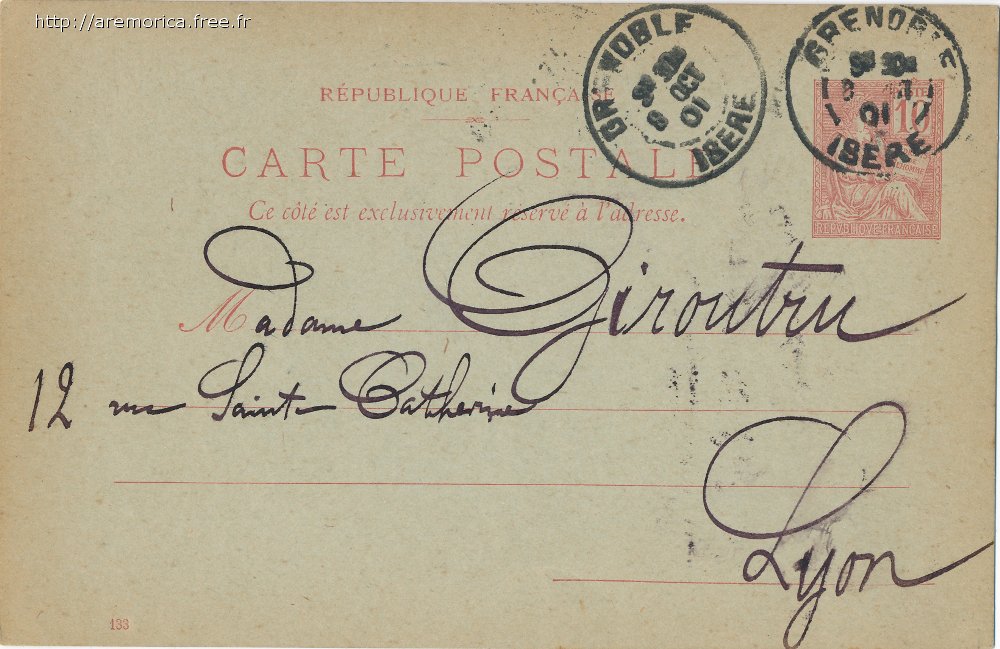 http://aremorica.free.fr
RÉPUBLIQUE FRANÇAISE
CARTE POSTALE
Ce côté est exclusivement réservé à l'adresse.
GRENOBLE
8 OCT
01
ISERE
GRENOBLE
8
01
ISERE
10
REPVBLIQVE·FRANÇAISE
Madame Giroutru
12 rue Saint-Catherine
Lyon
133